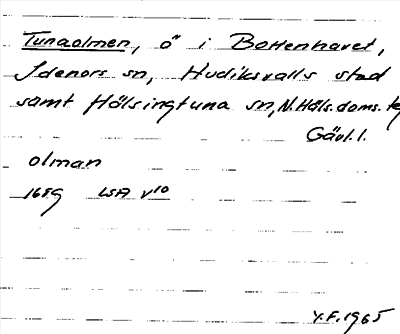 Tunaolmen, ö i Bottenhavet,
Idenors sn, Hudiksvalls stad
samt Hälsingtuna sn, N. Häls. doms.
Gävl. l.
olman
1659 LSA V10
Y.F. 1965